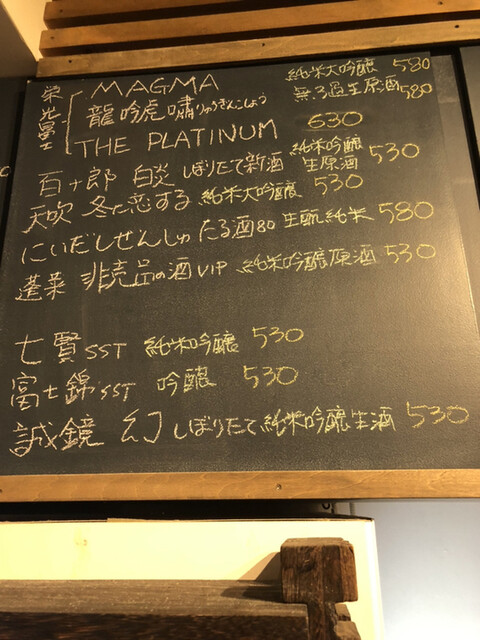 栄光冨士
MAGMA 純米大吟醸 580
龍吟虎嘯りゅうぎんこしょう 無ろ過生原酒 580
THE PLATINUM 630
百十郎 白炎 しぼりたて新酒 純米吟醸生原酒 530
天吹 冬に恋する 純米大吟醸 530
にいだしぜんしゅ たる酒80 生酛純米 580
蓬莱 非売品の酒VIP 純米吟醸原酒 530
七賢SST 純米吟醸 530
富士錦SST 吟醸 530
誠鏡 幻 しぼりたて純米吟醸生酒 530